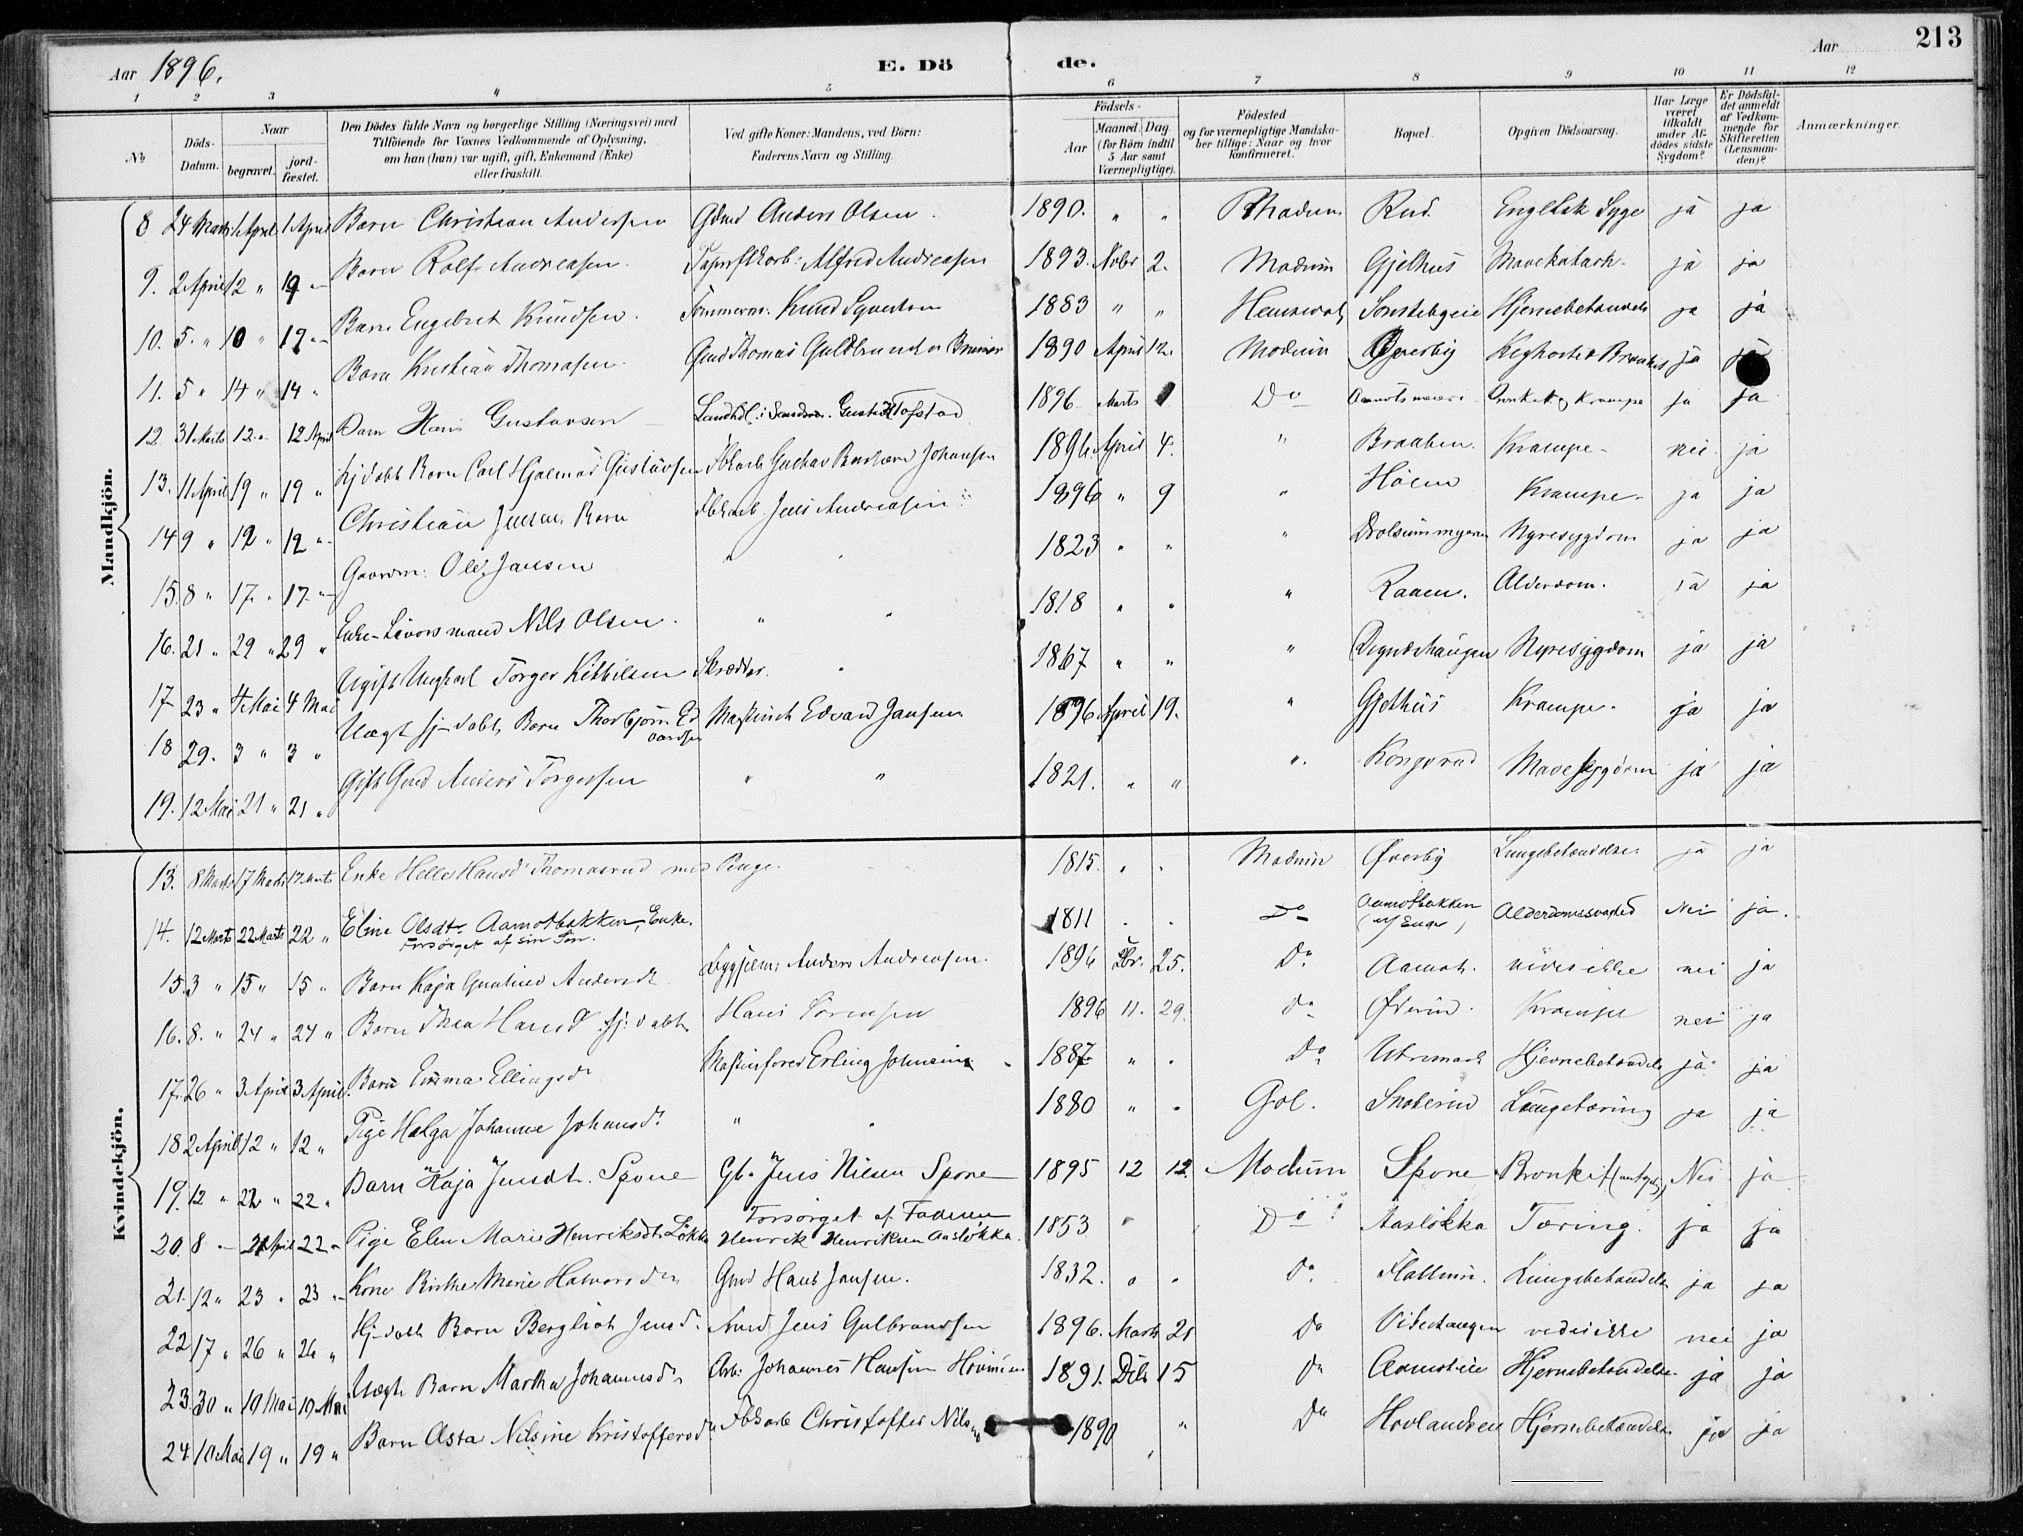 213
Aar 1896. E. Dö de. Aar
1 2 3 4 5 6 7 8 9 10 11 12
No
Döds-Datum.
Naar
begravet.
jordfæstet.
Den Dödes fulde Navn og borgerlige Stilling (Næringsvei) med
Tilföiende for Voxnes Vedkommende af Oplysning,
om han (hun) var ugift, gift, Enkemand (Enke)
eller fraskilt.
Ved gifte Koner: Mandens, ved Børn:
Faderens Navn og Stilling.
Födsels-
Aar
Maaned. Dag.
(for Børn indtil
5 Aar samt
Værnepligtige).
Födested
og for værnepligtige Mandska-
ber tillige: Naar og hvor
konfirmeret.
Bopæl.
Opgiven Dödsaarsag.
Har Læge
været
tilkaldt
under Af-
dödes sidste
Sygdom?
Er Dödsfal-
det anmeldt
af Vedkom-
mende for
Skifteretten
(Lensman-
den)?
Anmærkninger.
Mandkjön.
8 24 Marts 1 April 1 April Barn Christian Andersen Gdmd Anders Olsen 1890. " " Modum Rud. Engelsk Syge ja ja
9. 2 April 12 " 19 " Barn Rolf Andreasen. Alfred Andreasen 1893. Novbr 2. Modum Gjethus Mavekatarh ja ja
10. 5. " 10 " 19 " Barn Engebret Knudsen. Tømmerm. Knud 1883 " " Hjernebetændelse ja ja
11. 5 " 14 " 14 " Barn Kristian Thomasen. Gmd Thomas Guldbrandsen 1890 April 12. Modum ja
12. 31 Marts 12 " 12 April Barn Hans Gustavsen Landhdl. Gustav Tofstad 1896 Marts Do Bronkit og Krampe ja ja
13. 11 April 19 " 19 " Hj døbt Barn Carl Hjalmar Gustavsen Fbkarb Gustav Johansen 1896. April 4. " Braaten. Krampe nei ja
14 9 " 12 " 12 " Christian Jensen Barn Fbkarb. Jens Andreasen 1896 " 9 " Høien Krampe ja ja
15. 8 " 17. " 17. " Gaardm: Ole Jansen " " 1823 " " " Drolsummyren Nyresygdom ja ja
16. 21 " 29 " 29 " Enke-Livørsmand Nils Olsen. " " 1818 " " " Raaen. Alderdom. ja ja
17 23 " 4 Mai 4 Mai Ugift Ungkarl Torger Kittilsen Skrædder. " 1867 " " " Nyresygdom ja ja
18 29. 3 " 3 " Uægt hj-døbt Barn Thorbjørn Edvardsen Maskinist Edvard Jansen 1896 April 19. " Gjethus Krampe. ja ja
19. 12 Mai 21 " 21 " Gift Gmd Anders Torgersen " " 1821. " " " Kongsrud Mavesygdom ja ja
Kvindekjön.
13. 8 Marts 17 Marts 17 Marts Enke Helle Hansd. Thomasrud 1815. " " Modum Øverby Lungebetændelse ja ja
14. 12 Marts 22 Marts 22 " Eline Olsdtr Aamotbakken, Enke. 1811 " " Do Aamotbakken Alderdomssvaghed Nei ja.
Forsørget af sin Søn.
15. 3 " 15 " 15 " Barn Kaja Andersdt Anders Andreasen. 1896 Fbr. 25. Do Aamot. vides ikke nei ja
16. 8. " 24 " 24 " Barn Thea Hansd. hj: døbt Hans Sørensen 1896 11. 29. Do Øderud. Krampe nei ja
17. 26 " 3 April 3 April Barn Emma Ellingsd. Johnsen 1887 " " Do Utmark Hjernebetændelse ja ja
18 2 April 12 " 12 " Pige Helga Johanne Johansd. " " 1880 " " Gol. Lungetæring ja ja
19. 12 " 22 " 22 " Barn Kaja Jensdt. Spone Gb. Jens Nilsen Spone 1895 12 12. Modum Spone Bronkit Nei ja
20. 8 " April 22 " Pige Elen Marie Henriksdt. Løkka Forsørget af Faderen Henrik Henriksen Aasløkka. 1853 " " Do Aasløkka Tæring. ja ja
21. 12 " 23 " 23 " Kone Birthe Marie Halvorsd. Gmd Hans Jansen. 1832. " " Do Flattum. Lungebetændelse ja ja
22. 17 " 26 " 26 " Hj-døbt Barn Bergliot Jensd. Jens Gulbrandsen 1896. Marts 21 Do vides ikke nei ja
23. 30 " 10 Mai 10 Mai Uægte Barn Martha Johannesd. Arb: Johannes Hansen 1891. Dcbr 15 Do Hjernebetændelse ja ja
24. 10 Mai 19 " 19 " Barn Asta Nilsine Kristoffersd. Fbkarb Christoffer Nilsen 1890 " " Do Hovlandseie Hjernebetændelse ja ja